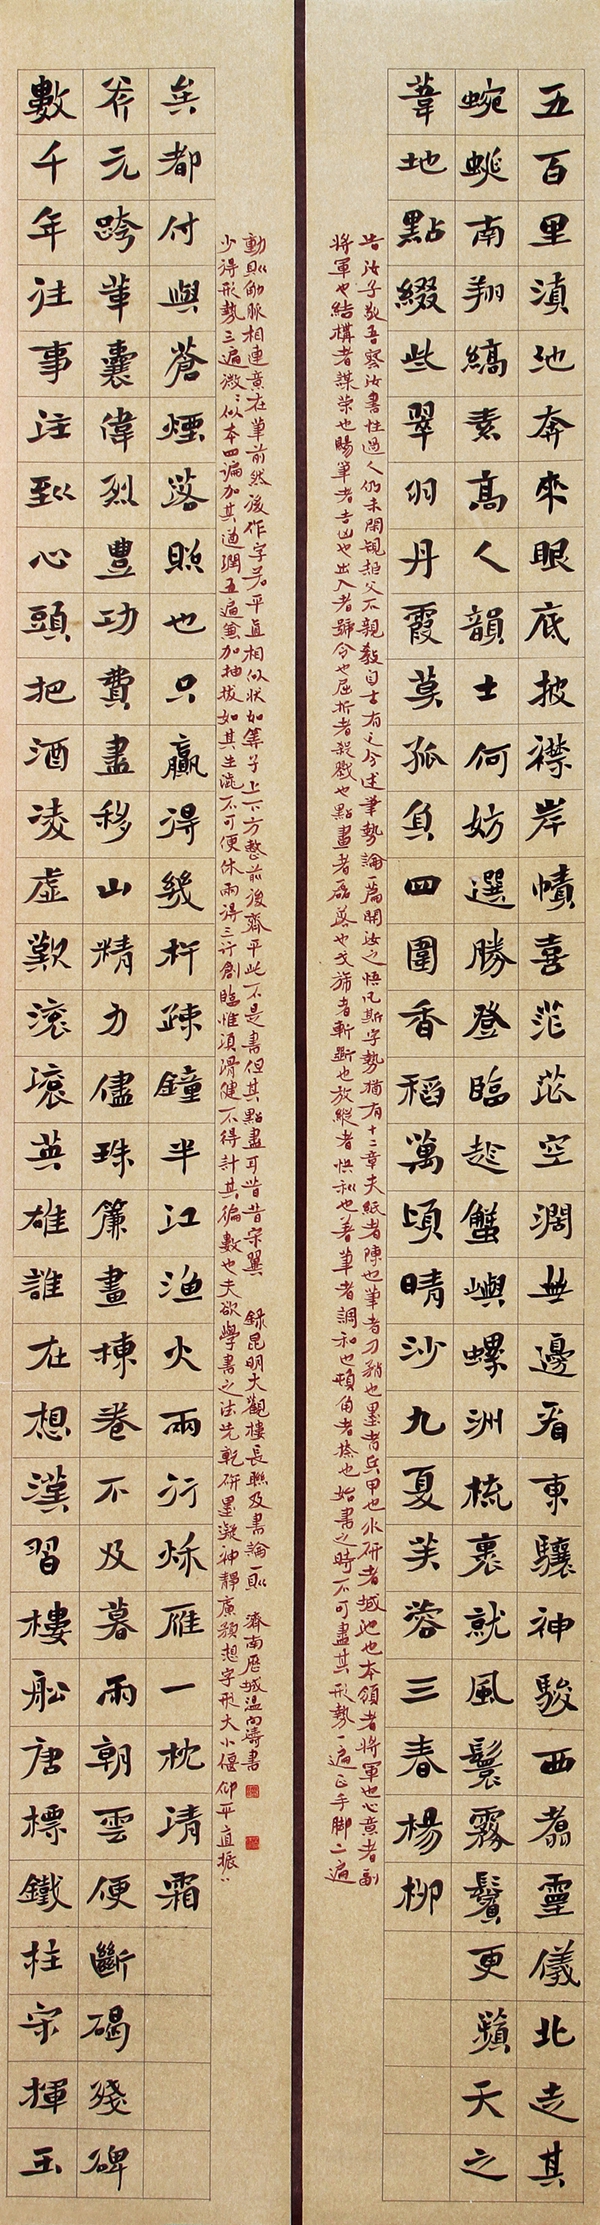 五百里滇池奔來眼底披襟岸幘喜茫茫空濶無邊看東驤神駿西翥靈儀北走其
蜿蜒南翔縞素高人韻士何妨選勝登臨趁蟹嶼螺洲梳裹就風鬟霧鬢更蘋天之
葦地點綴些翠羽丹霞莫孤負四圍香稻萬頃晴沙九夏芙蓉三春楊柳
告汝子敬吾察汝書性過人仍未閑規矩父不親教自古有之今述筆勢論一篇開汝之悟凡斯字勢猶有十二章夫紙者陣也筆者刀矟也墨者兵甲也水研者城池也本領者將軍也心意者副
將軍也結構者謀策也颺筆者吉凶也出入者號令也屈折者殺戮也點畫者磊落也戈旆者斬斫也放縱者快利也著筆者調和也頓角者捺也始書之時不可盡其形勢一遍正手腳二遍
數千年往事注到心頭把酒凌虛歎滾滾英雄誰在想漢習樓船唐標鐵柱宋揮玉
斧元跨革囊偉烈豐功費盡移山精力儘珠簾畫棟卷不及暮雨朝雲便斷碣殘碑
矣都付與蒼煙落照也只贏得幾杵疎鐘半江漁火兩行秌雁一枕清霜
少得形勢三遍微微似本四遍加其遒潤五遍兼加抽拔如其生澀不可便休兩行三行創臨惟須滑健不得計其徧數也夫欲學書之法先乾研墨凝神靜慮預想字形大小偃仰平直振
動則筋脈相連意在筆前然後作字若平直相似狀如算子上下方整前後齊平此不是書但其點畫耳昔昔宋翼 錄昆明大觀樓長聯及書論一則 濟南歷城溫向濤書